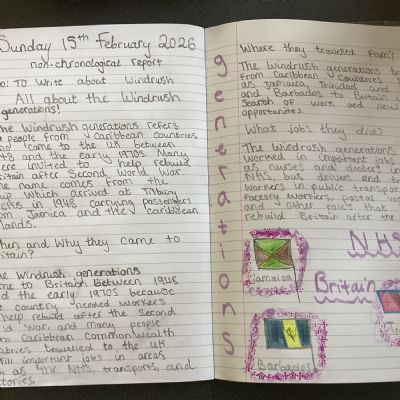 Sunday 15th February 2026
non-chronological report
To: TO Write about Windrush
All about the Windrush
generations!
The Windrush generations refers
to people from caribbean countries
who came to the UK between
1948 and the early 1970s. Many
were invited to help rebuild
Britain after Second World War.
The name comes from the
ship which arrived at Tilbury
Docks in 1948 carrying passengers
from Jamica and the caribbean
islands.
When and Why they came to
Britain?
The Windrush generations
came to Britain between 1948
and the early 1970s because
the country needed workers
to help rebuild after the Second
World War, and many people
from Caribbean commonwealth
countries travelled to the UK
to fill important jobs in areas
such as the NHS, transports, and
factories.
generations
Where they travelled from?
The Windrush generations
from caribbean countries
as Jamaica, Trinidad and
and Barbados to Britain
Search of work and new
opportunites.
What jobs they did?
The Windrush generations
worked in important jobs
as nurses and
NHS, bus drivers and
workers in public transport
factory workers, postal
and other roles that
rebuild Britain after the
NHS
Jamaica
Britain
Barbados
Tr